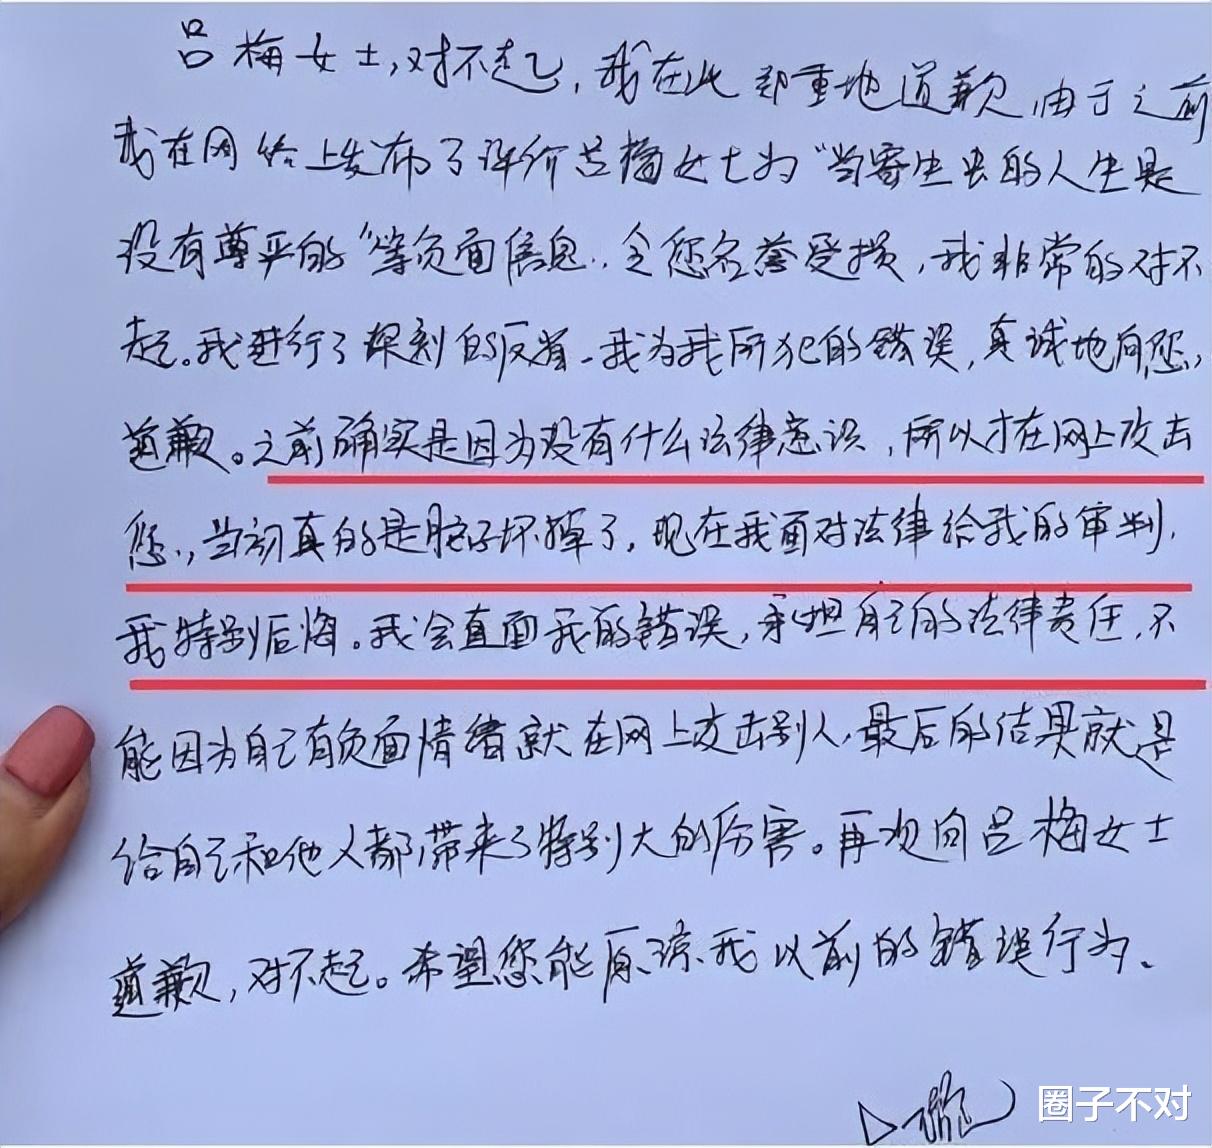 吕梅女士,对不起,我在此郑重地道歉,由于之前
我在网络上发布了评价吕梅女士为“当寄生虫的人生是
没有尊严的”等负面信息,令您名誉受损,我非常的对不
起。我进行了深刻的反省,我为我所犯的错误,真诚地向您,
道歉。之前确实是因为没有什么法律意识,所以才在网上攻击
您,当初真的是脑子坏掉了,现在我面对法律给我的审判,
我特别后悔。我会直面我的错误,承担自己的法律责任,不
能因为自己有负面情绪就在网上攻击别人,最后的结果就是
给自己和他人都带来了特别大的伤害。再次向吕梅女士
道歉,对不起。希望您能原谅我以前的错误行为。
圈子不对